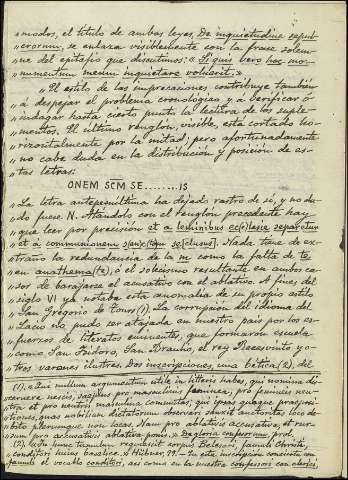 »modos, el título de ambas leyes, De inquietudine sepul-
crorum, se enlaza visiblemente con la frase solem-
»ne del epitafio que discutimos: «Si quis vero hoc mo-
numentum meum inquietare voluerit.»
»El estilo de las imprecaciones contribuye también
»á despejar el problema cronológico y á verificar ó
»indagar hasta cierto punto la lectura de los suple-
»mentos. El último renglón, visible, está cortado ho-
»rizontalmente por la mitad; pero afortunadamente
»no cabe duda en la distribución y posición de es-
»tas letras:
ONEM SCM SE........IS
»La letra antepenúltima ha dejado rastro de sí, y no du-
»do fuese N. Atándolo con el renglón precedente hay
»que leer por precisión et a leminibus ec(c)lesie separetur
»et á communionem s(an)c(ta)m se[clusus]. Nada tiene de ex-
»traño la redundancia de la m como la falta de te
»en anathema(te), ó el solecismo resultante en ambos ca-
»sos de barajarse el acusativo con el ablativo. A fines del
»siglo VI ya notaba esta anomalia de su propio estilo
»San Gregorio de Tours (1). La corrupción del idioma del
»Lacio no pudo ser atajada en nuestro país por los es-
»fuerzos de literatos eminentes, que formaron escuela
»como San Isidoro, San Braulio, el rey Recesvinto y o-
»tros varones ilustres. Dos inscripciones, una bética (2), del
(1). «Qui nullum argumentum utile in litteris habes, qui nomina dis-
cernere nescis, saepius pro masculinis feminea, pro femineis neu-
tra et pro neutris masculina commutas; qui ipsas quoque praeposi-
tiones, quas nobilium dictatorum observari sanxit auctoritas loco de-
bito plerumque non locas. Nam pro ablativis accusativa, et rur-
sum pro accusativis ablativa ponis.» De gloria confessorum, prol.
(2). «In hunc tumulum requiescit corpus Belesari, famuli Christi,
conditori huius baselice.» Hübner, 99. En esta inscripción concierta con
famuli el vocablo conditori, así como en la nuestra confessori con clerici,